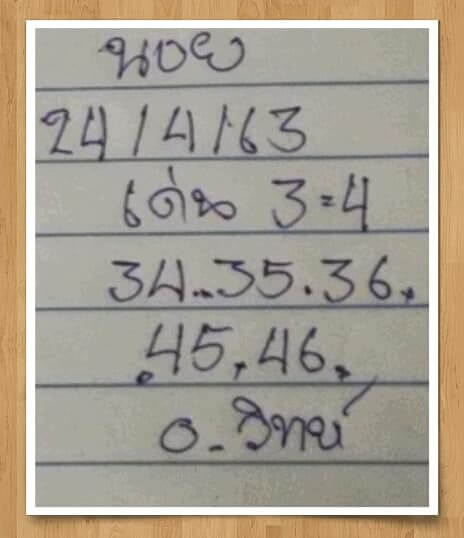 นอย
24/4/63
เด่น 3=4
34..35.36.
.45.46.
อ.วิทย์